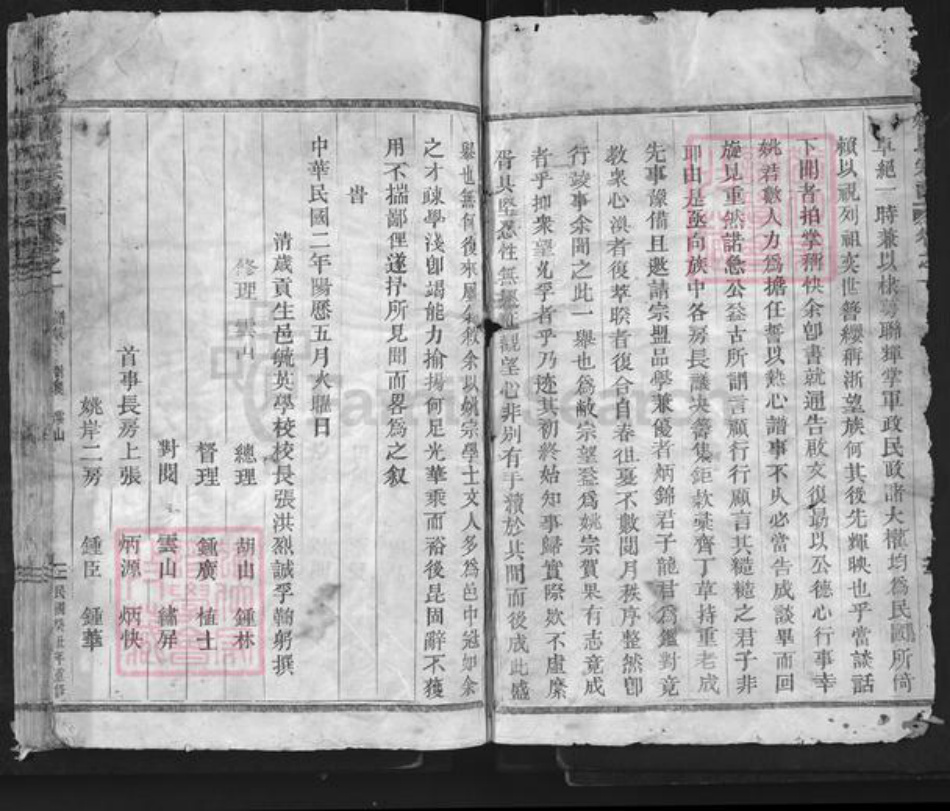 卓絕一時兼以棣萼聯輝掌軍政民政諸大權均為民國所倚
賴以視列祖奕世簪纓稱浙望族何其後先輝映也乎當談話
下聞者拍掌稱快余卽書就通告啟文復勗以公德心行事幸
姚君數人力爲擔任誓以熱心譜事不火必當告成談畢而回
旋見重然諾急公益古所謂言顧行行顧言其慥慥之君子非
耶由是亟向族中各房長議决籌集鉅欵彙齊丁草持重老成
先事豫備且邀請宗盟品學兼優者炳錦君子龍君爲鑑對竟
教衆心渙者復萃睽者復合自春徂夏不數閱月秩序整然卽
行竣事余聞之此一舉也爲敝宗望益爲姚宗賀果有志竟成
者乎抑衆望允孚者乎乃迹其初終始知事歸實際欵不虛糜
胥其堅忍性無觀望心非別有手續於其間而後成此盛
舉也無何後來屬余敘余以姚宗學士文人多爲邑中冠如余
之才疎學淺卽竭能力揄揚何足光華乘而裕後昆固辭不獲
用不揣鄙俚遂抒所見聞而畧爲之叙
旹
中華民國二年陽曆五月火曜日
清歲貢生邑毓英學校校長張洪烈誠孚鞠躬撰
修理 雲山
總理 胡山 鍾林
督理 鍾廣 植士
對閱 雲山 繡屏
首事長房上張 炳源 炳快
姚岸二房 鍾臣 鍾華
卷之一
民國癸丑年重修
FamilySearch